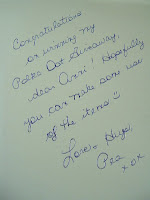 Congratulations
on winning my
Polka Dot Giveaway,
dear Anni! Hopefully
you can make some use
of the items :)
Love & Hugs
Pea
xox